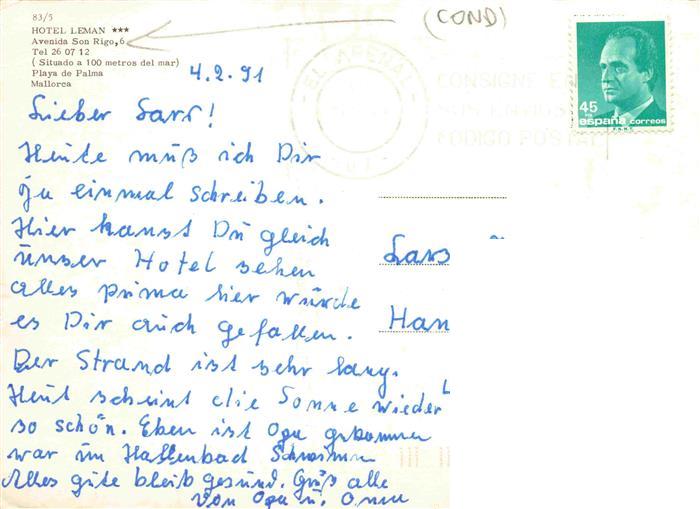 83/5
HOTEL LEMAN ★★★
Avenida Son Rigo, 6
Tel 26 07 12
( Situado a 100 metros del mar)
Playa de Palma
Mallorca
(COND)
4.2.91
EL ARENAL
CONSIGNE EN
SUS ENVIOS
CODIGO POSTAL
45
PTS
españa correos
F.N.M.T.
Lieber Lars!
Heute muß ich Dir
ja einmal schreiben.
Hier kanst Du gleich
unser Hotel sehen
alles prima hier würde
es Dir auch gefallen.
Der Strand ist sehr lang.
Heut scheint die Sonne wieder
so schön. Eben ist Opa gekommen
war im Hallenbad Schwimmen
Alles gute bleib gesund. Grüß alle
von Opa u. Oma
Lars
Han